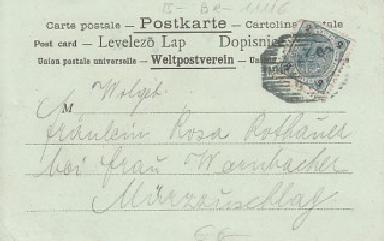 II - BR - 1116
Carte postale — Postkarte — Cartolina postale
Post card — Levelező Lap Dopisnice
Union postale universelle — Weltpostverein — Union
M Wolgeb.
Fräulein Rosa Rothauer
bei Frau Wornbacher
Mürzzuschlag